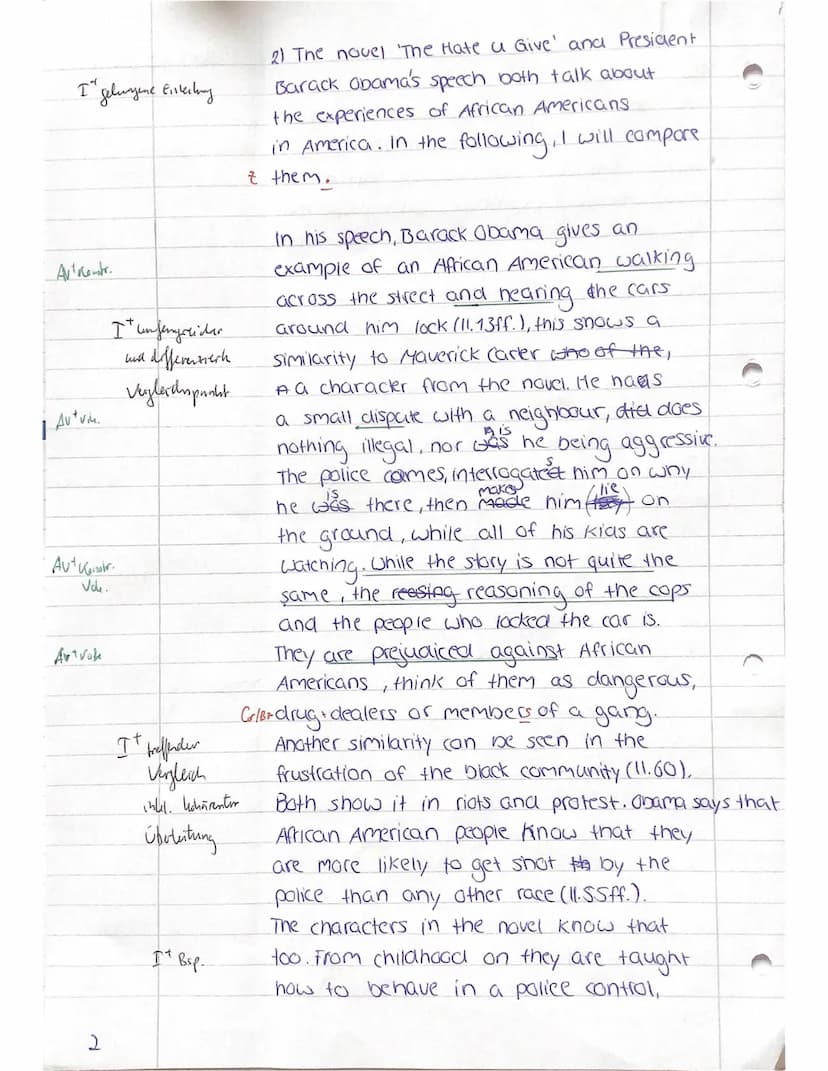 2) The novel 'The Hate u Give' and President
I+ gelungene Einleitung
Barack Obama's speech both talk about
the experiences of African Americans
in America. In the following, I will compare
z them.
In his speech, Barack Obama gives an
Av+ Konstr.
example of an African American walking
across the street and hearing the cars
I+ umfangreicher
around him lock (ll.13ff.), this shows a
und differenzierter
similarity to Maverick Carter who of the,
Vergleichspunkt
a character from the novel. He has
Av+ Vok.
a small dispute with a neighbour, did does
nothing illegal, nor was is he being aggressive.
The police comes, interrogates him on why
he was is there, then made makes him lie on
the ground, while all of his kids are
Av+ Konstr.
watching. While the story is not quite the
Vok.
same, the reesing reasoning of the cops
and the people who locked the car is.
Av+ Vok
They are prejudiced against African
Americans, think of them as dangerous,
Gr/Bz drug-dealers or members of a gang.
I+ treffender
Another similarity can be seen in the
Vergleich
frustration of the black community (ll.60).
inkl. kohärenter
Both show it in riots and protest. Obama says that
Überleitung
African American people know that they
are more likely to get shot by the
police than any other race (ll.55ff.).
The characters in the novel know that
I+ Bsp.
too. From childhood on they are taught
how to behave in a police control,
2